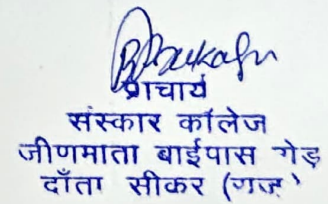 प्राचार्य
संस्कार कॉलेज
जीणमाता बाईपास रोड़
दाँता सीकर (राज॰)